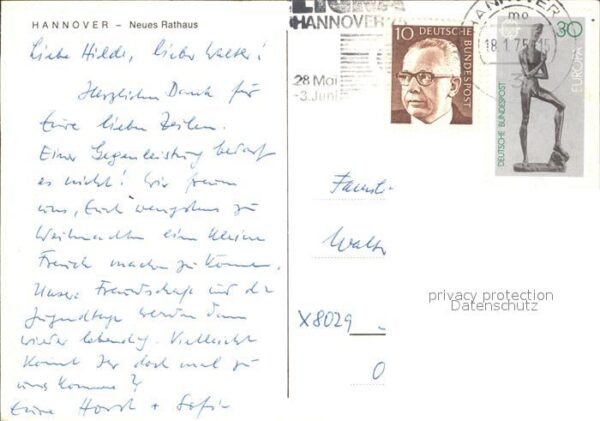 HANNOVER – Neues Rathaus
Liebe Hilde, lieber Walter!
Herzlichen Dank für
Eure lieben Zeilen.
Einer Gegenleistung bedarf
es nicht! Wir freuen
uns, Euch wenigstens zu
Weihnachten eine kleine
Freude machen zu können.
Unsere Freundschaft und die
Jugendtage werden dann
wieder lebendig. Vielleicht
kommt Ihr doch mal zu
uns
Eure Horst + Sofie
HANNOVER
28 Mai
-3. Juni
10 DEUTSCHE BUNDESPOST
HANNOVER
mo
18.1.75-15
3
30
EUROPA
DEUTSCHE BUNDESPOST
Famil
Walt
X8029
privacy protection
Datenschutz